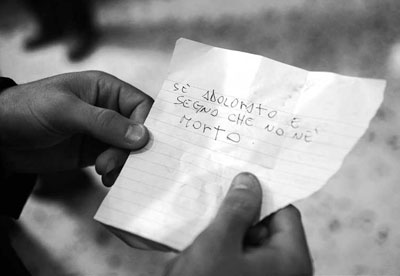 SÈ ADOLORATO E
SEGNO CHE NO NÈ
MORTO.